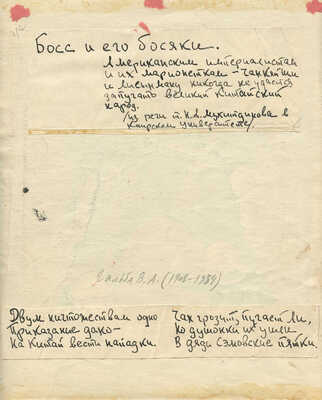 Босс и его босяки.
Американским империалистам
и их марионеткам – чанкайши
и лисынману никогда не удастся
запугать великий Китайский
народ.
/из речи т. Н.А. Мухитдинова в
Каирском университете/
Гальба В.А. (1908-1984)
Двум ничтожествам одно
Приказание дано –
На Китай вести нападки.
Чан грозит, пугает Ли,
Но душонки их ушли
В дяди Сэмовские пятки.